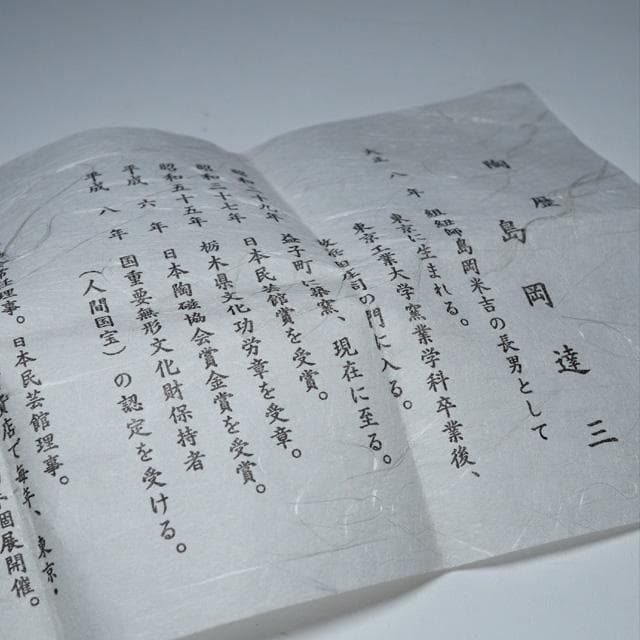 陶歴
島岡達三
大正八年 組紐師島岡米吉の長男として
東京に生まれる。
東京工業大学窯業学科卒業後、
庄司の門に入る。
益子町に築窯、現在に至る。
日本民芸館賞を受賞。
栃木県文化功労章を受章。
昭和五十五年 日本陶磁協会賞金賞を受賞。
平成六年 国重要無形文化財保持者
平成八年 (人間国宝)の認定を受ける。
理事。日本民芸館理事。
店で毎年、東京・
個展開催。